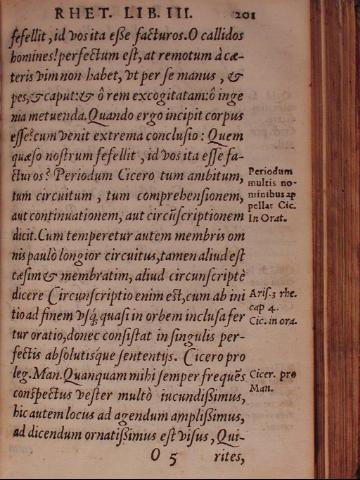 RHET. LIB. III. 201
fefellit, id vos ita eße facturos. O callidos
homines! perfectum est, at remotum à cæ-
teris vim non habet, vt per se manus, &
pes, & caput: & ô rem excogitatam: ô inge
nia metuenda. Quando ergo incipit corpus
esse: cum venit extrema conclusio: Quem
quæso nostrum fefellit, id vos ita esse fa-
cturos? Periodum Cicero tum ambitum,
tum circuitum, tum comprehensionem,
aut continuationem, aut circũscriptionem
dicit. Cum temperetur autem membris om
nis paulò longior circuitus, tamen aliud est
cæsim & membratim, aliud circunscriptè
dicere Circunscriptio enim est, cum ab ini
tio ad finem vsq́, quasi in orbem inclusa fer
tur oratio, donec consistat in singulis per-
fectis absolutisque sententijs. Cicero pro
leg. Man. Quanquam mihi semper frequẽs
conspectus vester multò iucundißimus,
hic autem locus ad agendum amplißimus,
ad dicendum ornatißimus est visus, Qui-
O 5 rites,
Periodum
multis no-
minibus ap
pellat Cic.
in Orat.
Aris. 3 rhe.
cap 4.
Cic. in ora.
Cicer. pro
Man.